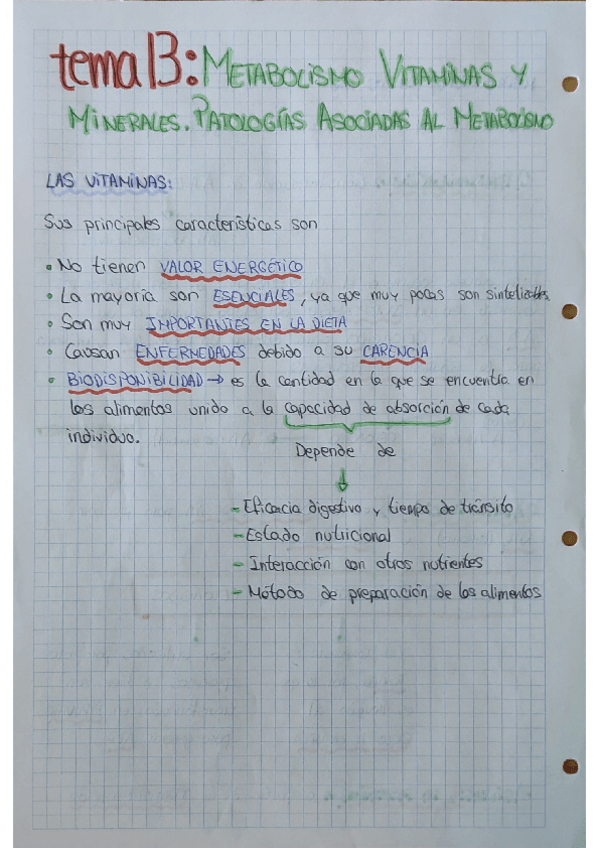 tema 13: METABOLISMO VITAMINAS Y
MINERALES. PATOLOGÍAS ASOCIADAS AL METABOLISMO
LAS VITAMINAS:
Sus principales características son
• No tienen VALOR ENERGÉTICO
• La mayoría son ESENCIALES, ya que muy pocas son sintetizables
• Son muy IMPORTANTES EN LA DIETA
• Causan ENFERMEDADES debido a su CARENCIA
• BIODISPONIBILIDAD → es la cantidad en la que se encuentra en
los alimentos unido a la capacidad de absorción de cada
individuo.
Depende de
↓
- Eficacia digestiva y tiempo de tránsito
- Estado nutricional
- Interacción con otros nutrientes
- Método de preparación de los alimentos